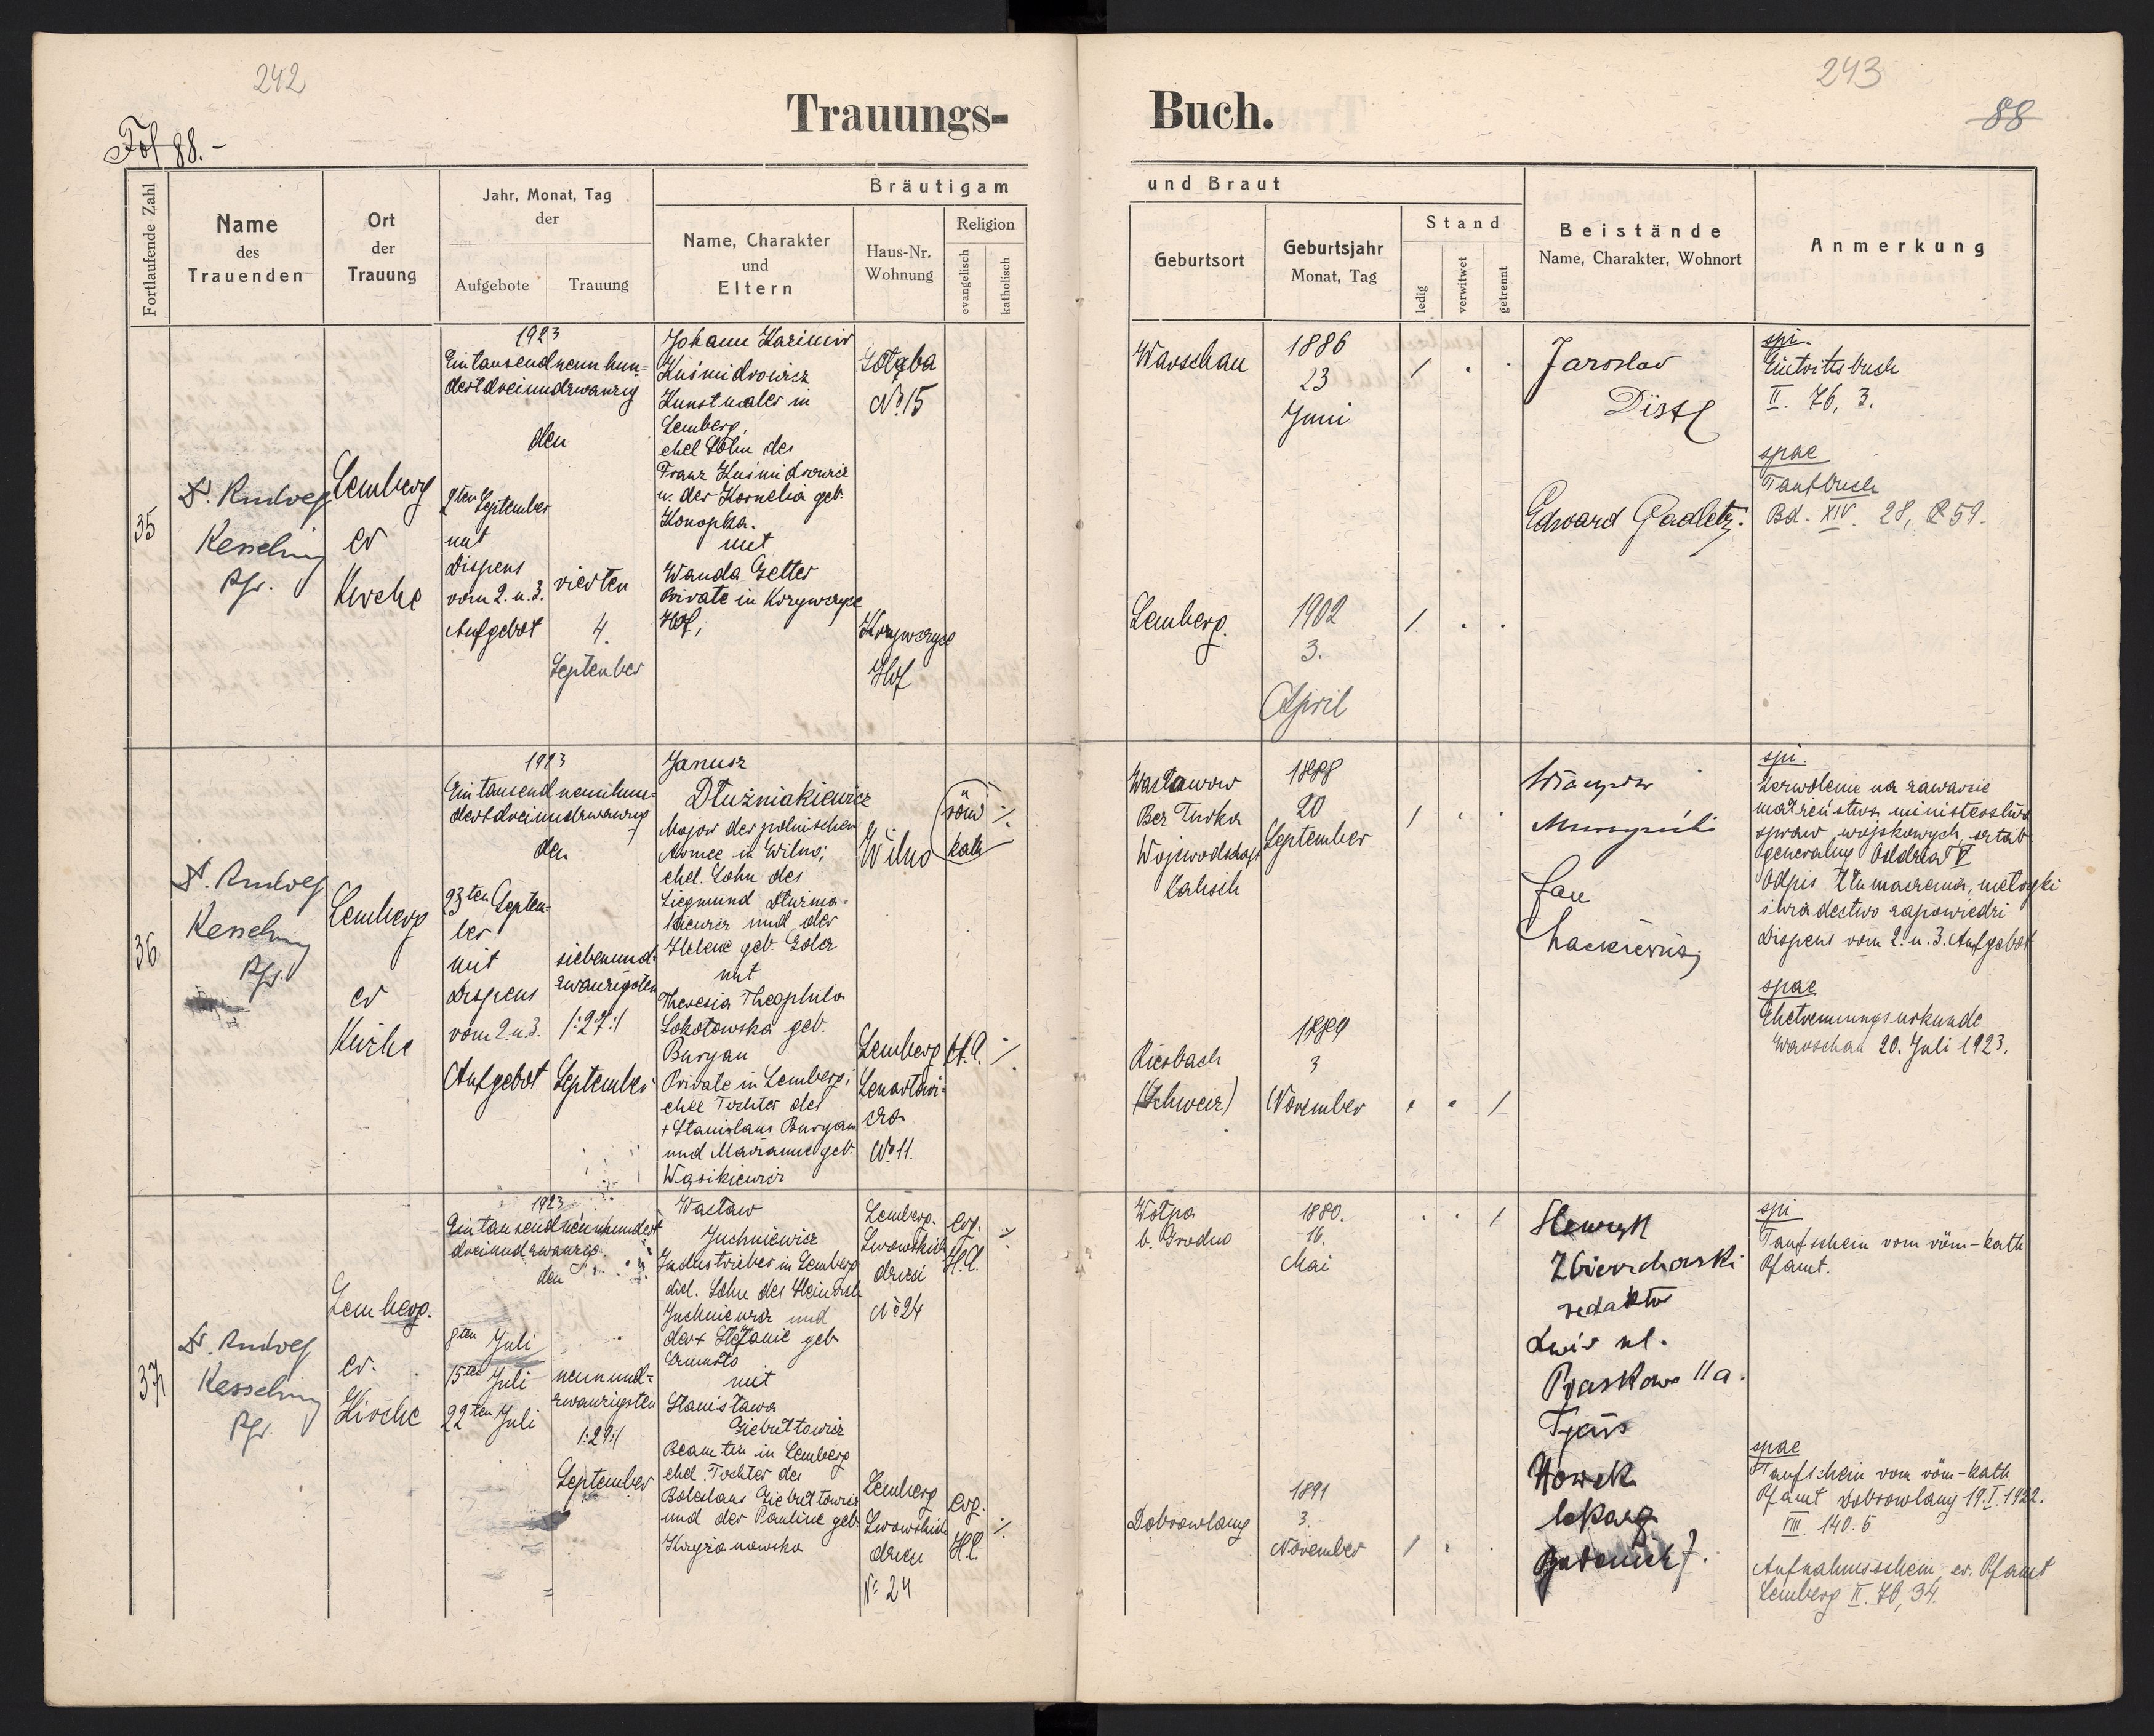 242
243
Fol 88.-
88
Trauungs-
Buch.
Fortlaufende Zahl
Name
des
Trauenden
Ort
der
Trauung
Jahr, Monat, Tag
der
Aufgebote
Trauung
Bräutigam
Name, Charakter
und
Eltern
Haus-Nr.
Wohnung
Religion
evangelisch
katholisch
und Braut
Geburtsort
Geburtsjahr
Monat, Tag
Stand
ledig
verwitwet
getrennt
Beistände
Name, Charakter, Wohnort
Anmerkung
35
Dr. Rudolf
Kesselring
Pfr.
Lemberg
ev
Kirche
1923
Eintausendneunhun-
dertdreiundzwanzig
den
2ten September
mit
Dispens
vom 2. u. 3.
Aufgebot
vierten
4.
September
Johann Kazimir
Kuśmidrowicz
Kunstmaler in
Lemberg,
ehel Sohn des
Franz Kuśmidrowicz
u. der Kornelia geb.
Konopka.
mit
Wanda Getter
Private in Krzywczyce
Hof;
No 15
Krzywczyce
Hof
Warschau
1886
23
Juni
/ . .
Lemberg.
1902
3.
April
/ . .
Jaroslav
Distl
Edward Gadletz.
spi.
Eintrittsbuch
II. 76, 3.
spae
Taufbuch
Bd. XIV. 28, 59.
36
Dr. Rudolf
Kesselring
Pfr.
Lemberg
ev
Kirche
1923
Eintausendneunhun-
dertdreiundzwanzig
den
23ten Septem-
ber
mit
Dispens
vom 2. u. 3.
Aufgebot
siebenund-
zwanzigsten
/:27:/
September
Janusz
Dłużniakiewicz
Major der polnischen
Armee in Wilno;
ehel. Sohn des
Siegmund Dłuznia-
kiewicz und der
Helene geb. Goler
mit
Theresia Theophila
Sokołowska geb.
Buryan
Private in Lemberg;
ehel Tochter des
+ Stanislaus Buryan
und Marianne geb.
Wąsikiewicz
Wilno
röm
kath
Lemberg
Lenartowi-
cza
No 11.
A.C.
Wacławow
Bez Turka
Wojewodschaft
Kalisch
1888
20
September
/ . .
Riesbach
(Schweiz)
1889
3
November
. . /
Jan
spi.
Zezwolenie na zawarcie
małżeństwa ministerstwa
spraw wojskowych sztab
generalny Oddział V
Odpis tłumaczenia, metryki
świadectwo zapowiedzi
Dispens vom 2. u. 3. Aufgebot
spae
Ehetrennungsurkunde
Warschau 20. Juli 1923.
37
Dr. Rudolf
Kesselring
Pfr.
Lemberg.
ev.
Kirche
1923
Eintausendneunhundert
dreiundzwanzig
den
8ten Juli
15ten Juli
22ten Juli
neunund-
zwanzigsten
/:29:/
September
Wacław
Juchniewicz
Industrieller in Lemberg
ehel. Sohn des Heinrich
Juchniewicz und
der + Stefanie geb
mit
Stanisława
Giebułtowicz
Beamtin in Lemberg
ehel. Tochter des
Boleslaus Giebułtowicz
und der Pauline geb
Lemberg.
Lwowskich
dzieci
No 24
evg.
H.C.
Lemberg
Lwowskich
dzieci
No 24
evg.
H.C.
Wołpa
b. Grodno
1880.
16.
Mai
. . /
Dobrowlany
1891
3.
November
/ . .
Henryk
Zbierzchowski
redaktor
Lwów ul.
Piaskowa 11a.
Nowak
lekarz
spi
Taufschein vom röm-kath
Pfamt.
spae
Taufschein vom röm-kath
Pfamt Dobrowlany 19.I.1922.
VIII. 140. 5
Aufnahmsschein ev. Pfamt
Lemberg II. 76, 34.